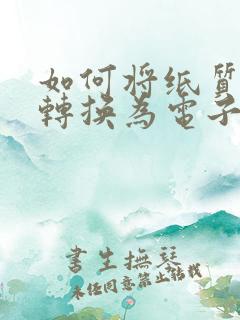 如何将纸質
轉換為電子
書生撫琴
未经同意禁止转载